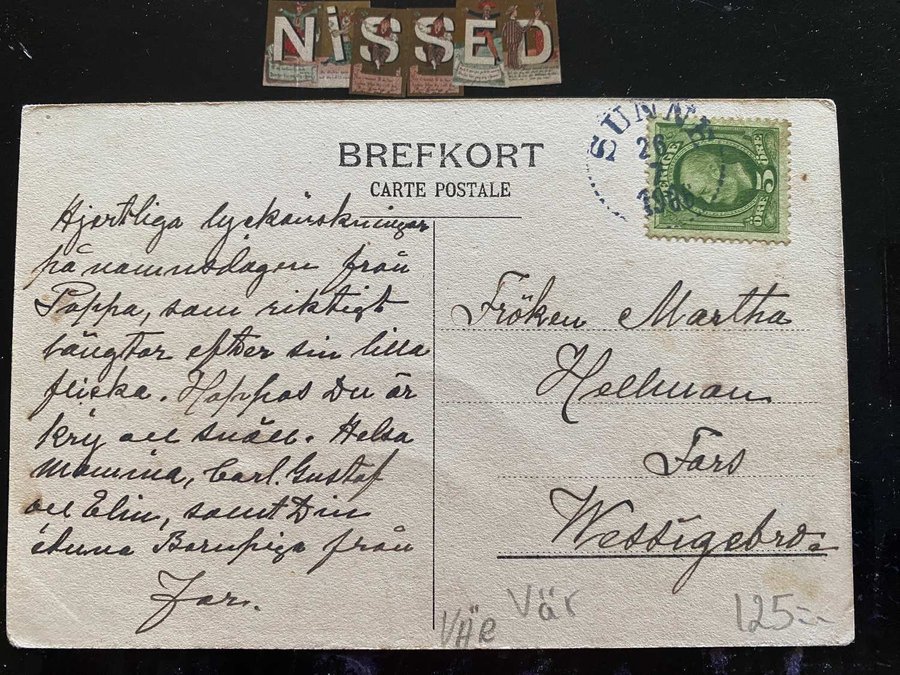 NISSED
BREFKORT
CARTE POSTALE
SUNNE
26
7
SVERIGE
5
ÖRE
Hjertliga lyckönskningar
på namnsdagen från
Pappa, som riktigt
längtar efter sin lilla
flicka. Hoppas Du är
kry och snäll. Helsa
Mamma, Carl. Gustaf
och Elin, samt Din
Barnpiga från
Far.
Fröken Martha
Hellman
Fars
Wessigebro
VÄR
Vär
125:-